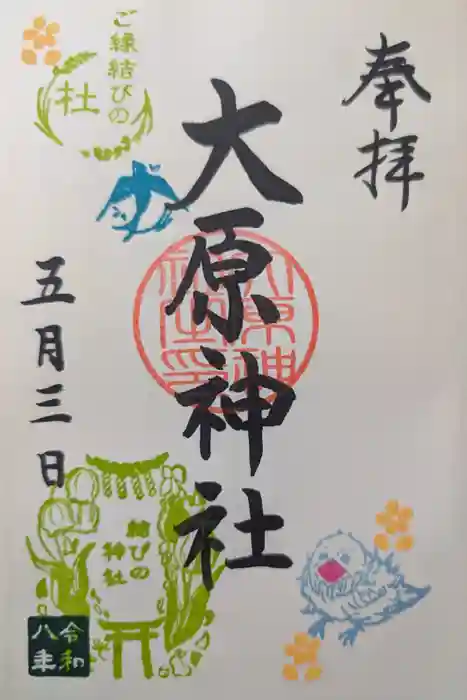 奉拝
大原神社
ご縁結びの
杜
五月三日
結びの
神社
令和
八年